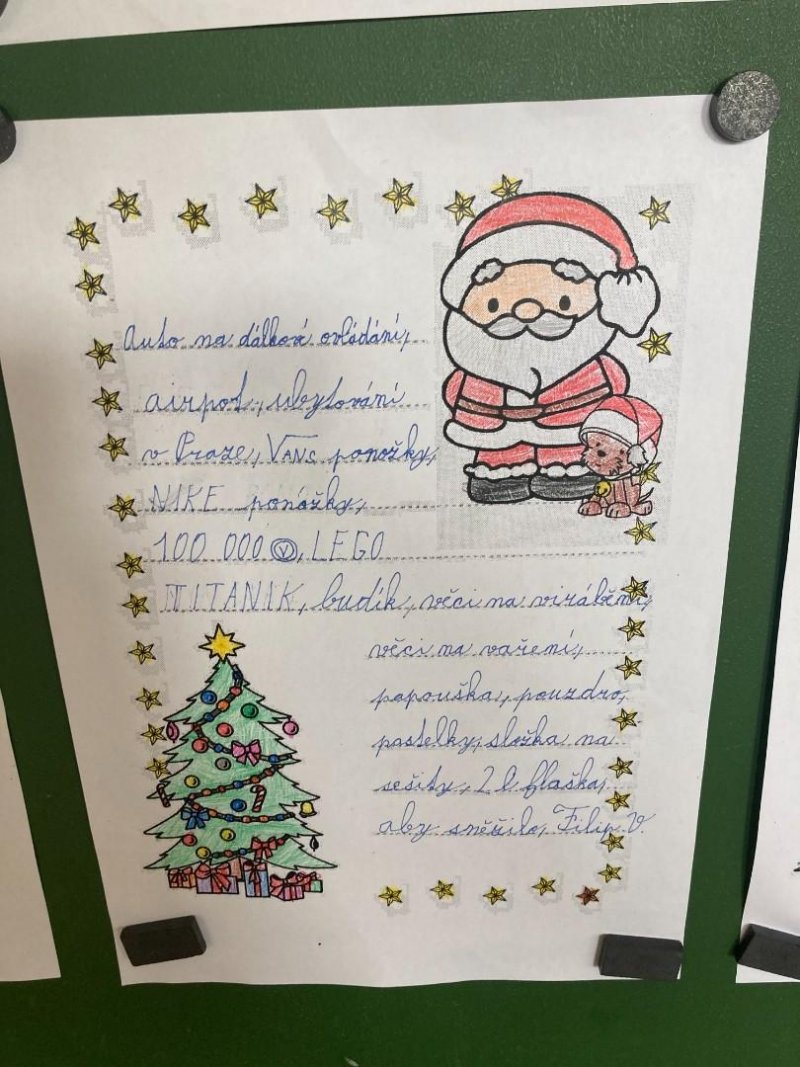 auto na dálkové ovládání,
airpot, ubytování
v Praze, VANS ponožky,
NIKE ponožky,
100 000 Ⓥ, LEGO
TITANIK, budík, věci na virábění,
věci na vaření,
papouška, pouzdro,
pastelky, složka na
sešity, 2 l flaška,
aby sněžilo, Filip V.